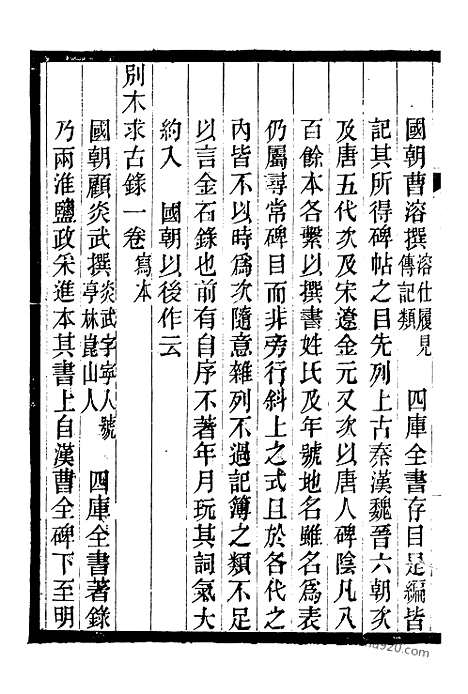 國朝曹溶撰溶仕履見傳記類　四庫全書存目是編皆
記其所得碑帖之目先列上古秦漢魏晉六朝次
及唐五代次及宋遼金元又次以唐人碑陰凡八
百餘本各繫以撰書姓氏及年號地名雖名爲表
仍屬尋常碑目而非旁行斜上之式且於各代之
內皆不以時爲次隨意雜列不過記簿之類不足
以言金石錄也前有自序不著年月玩其詞氣大
約入　國朝以後作云
別木求古錄一卷寫本
國朝顧炎武撰炎武字寧人號亭林崑山人　四庫全書著錄
乃兩淮鹽政采進本其書上自漢曹全碑下至明